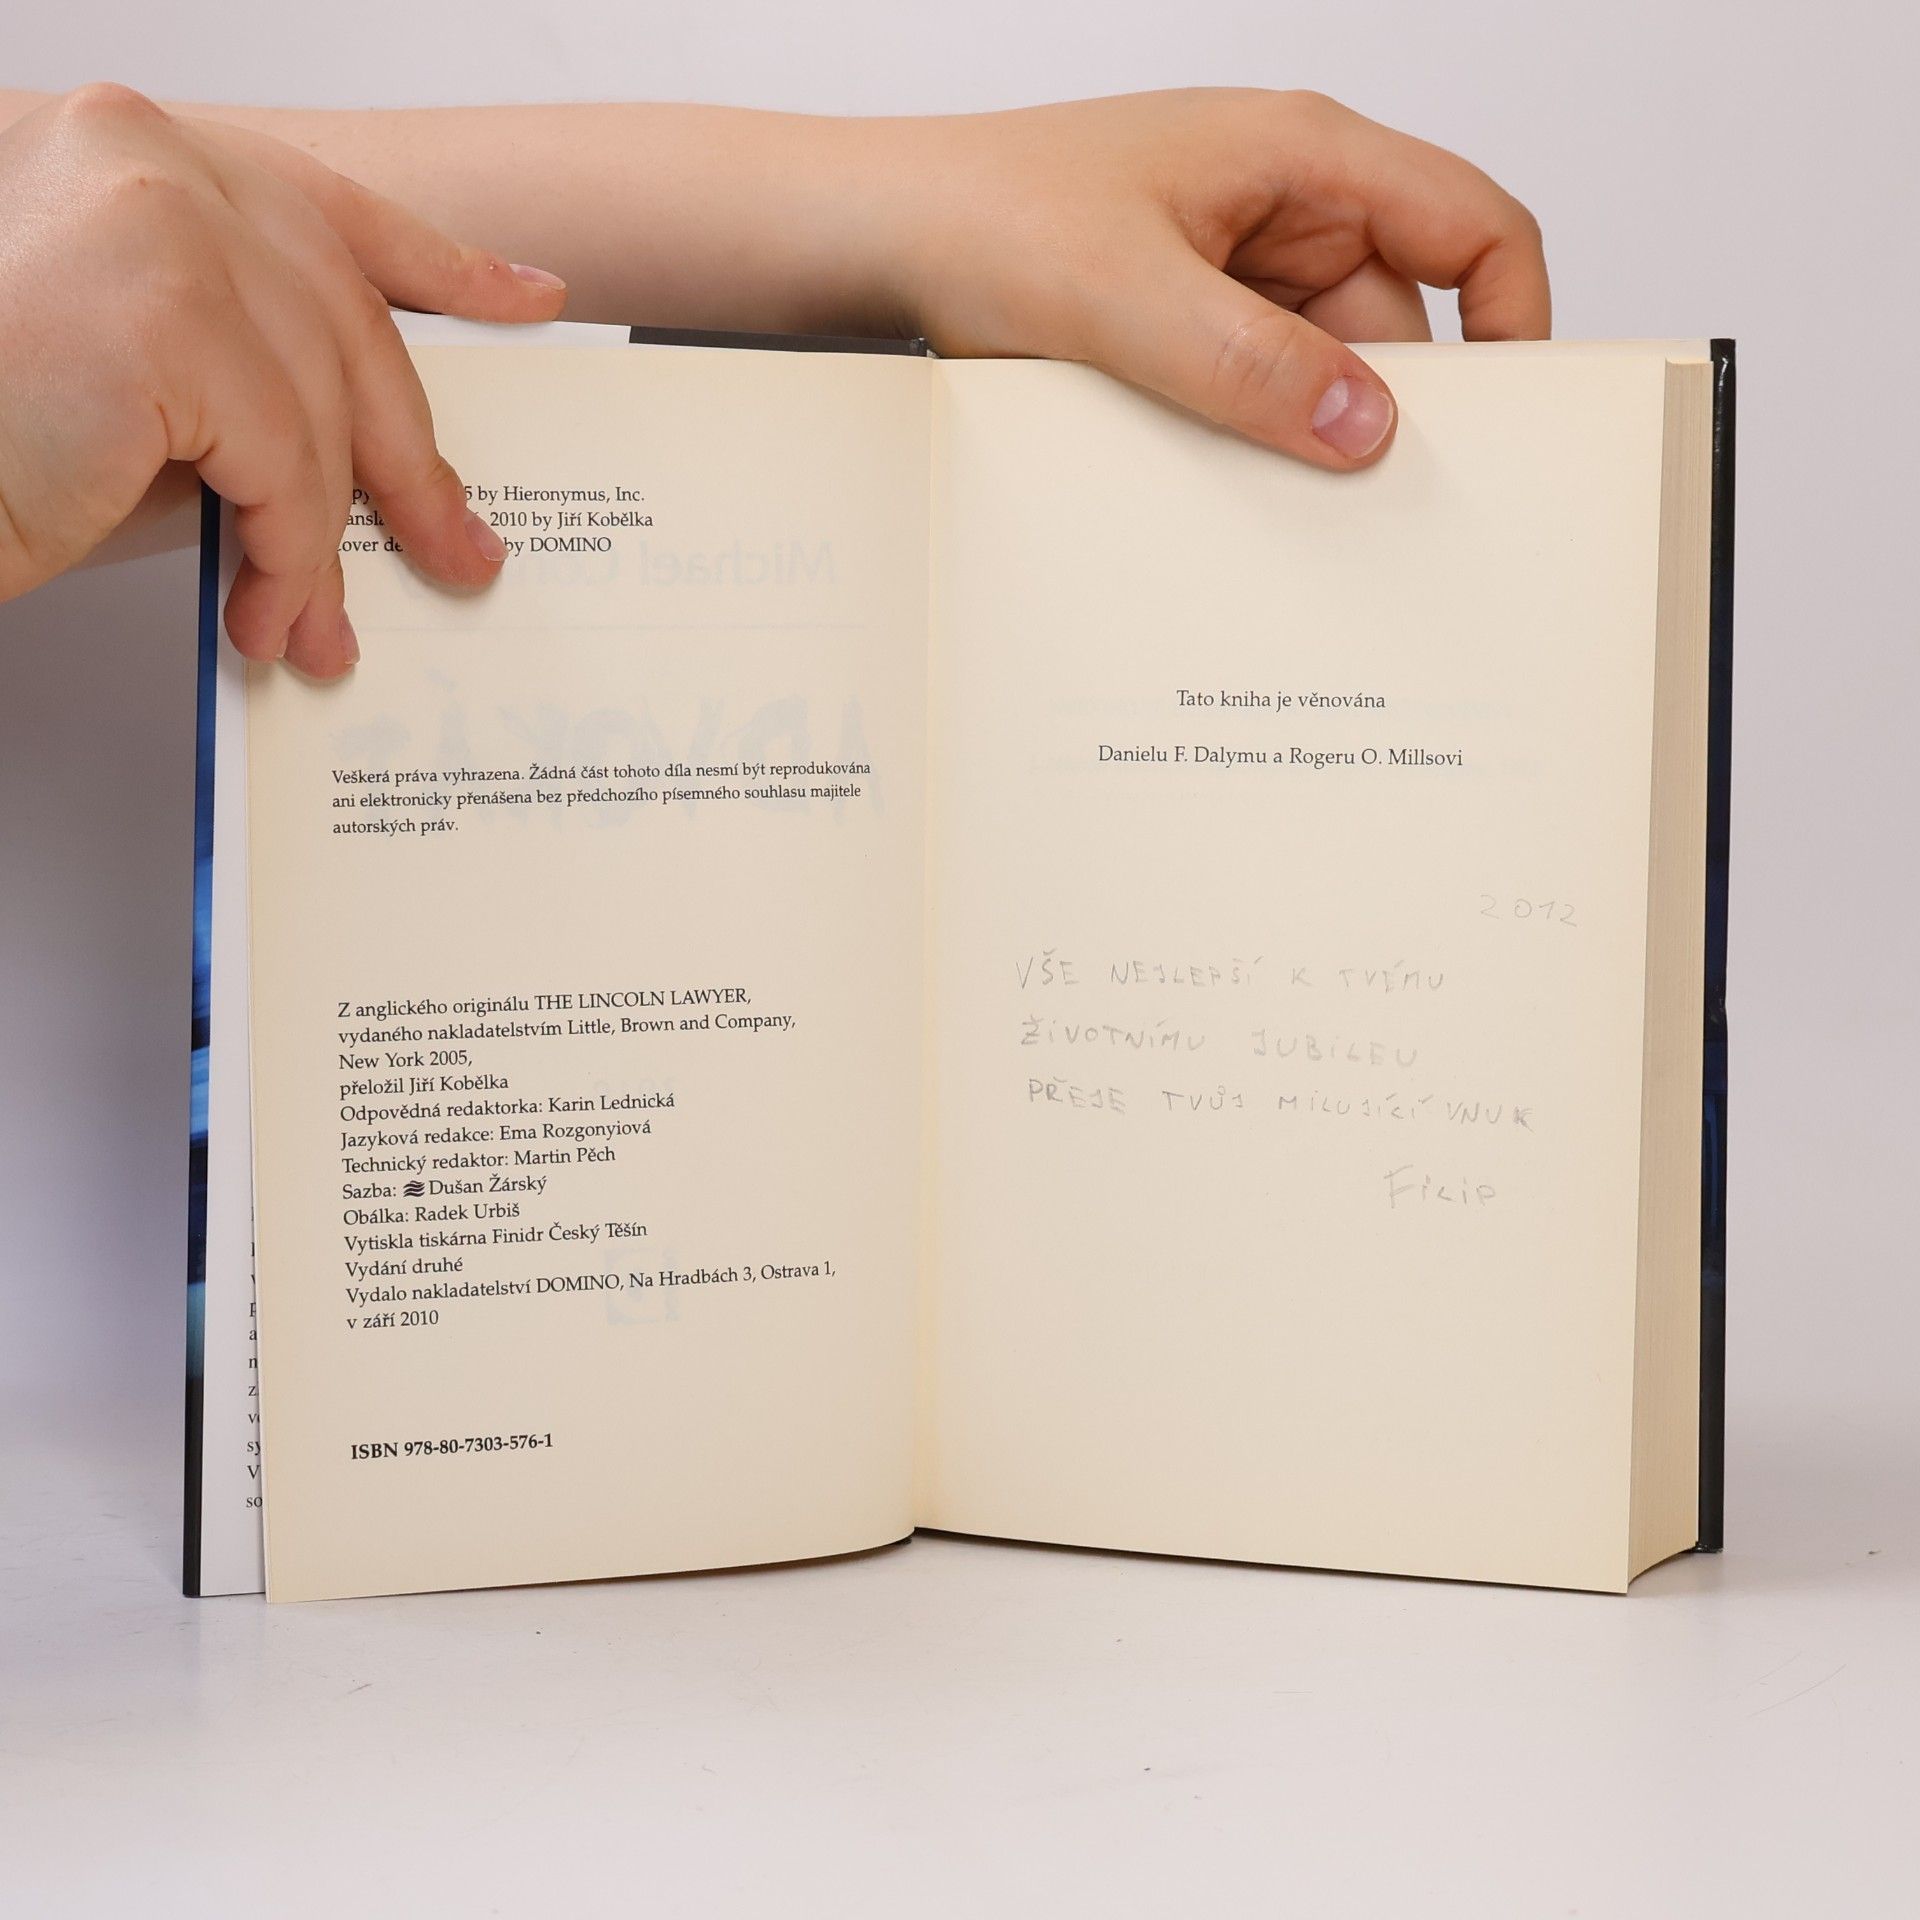 5 by Hieronymus, Inc.
2010 by Jiří Kobělka
over de by DOMINO
Veškerá práva vyhrazena. Žádná část tohoto díla nesmí být reprodukována
ani elektronicky přenášena bez předchozího písemného souhlasu majitele
autorských práv.
Z anglického originálu THE LINCOLN LAWYER,
vydaného nakladatelstvím Little, Brown and Company,
New York 2005,
přeložil Jiří Kobělka
Odpovědná redaktorka: Karin Lednická
Jazyková redakce: Ema Rozgonyiová
Technický redaktor: Martin Pěch
Sazba: Dušan Žárský
Obálka: Radek Urbiš
Vytiskla tiskárna Finidr Český Těšín
Vydání druhé
Vydalo nakladatelství DOMINO, Na Hradbách 3, Ostrava 1,
v září 2010
ISBN 978-80-7303-576-1
Tato kniha je věnována
Danielu F. Dalymu a Rogeru O. Millsovi
2012
VŠE NEJLEPŠÍ K TVÉMU
ŽIVOTNÍMU JUBILEU
PŘEJE TVŮJ MILUJÍCÍ VNUK
FILIP